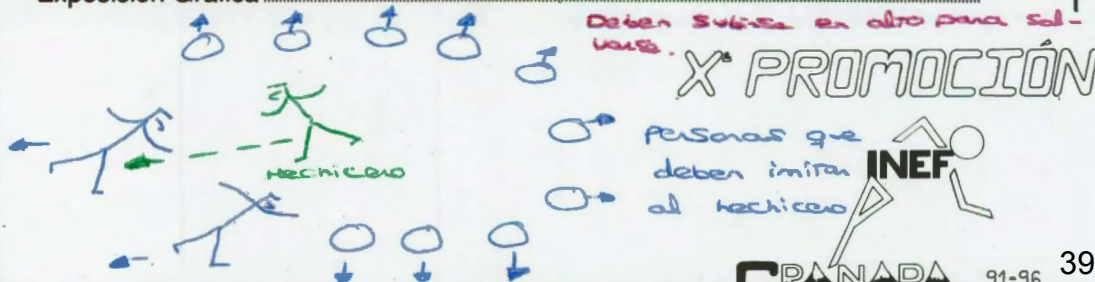 Exposición Gráfica
Deben subirse en alto para sal-
varse.
Xª PROMOCIÓN
Hechicero
personas que
deben imitar
al hechicero
INEF
GRANADA 91-96
39